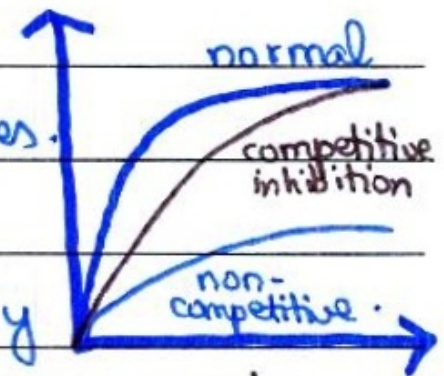 normal
es.
competitive
inhibition
non-
competitive.
y